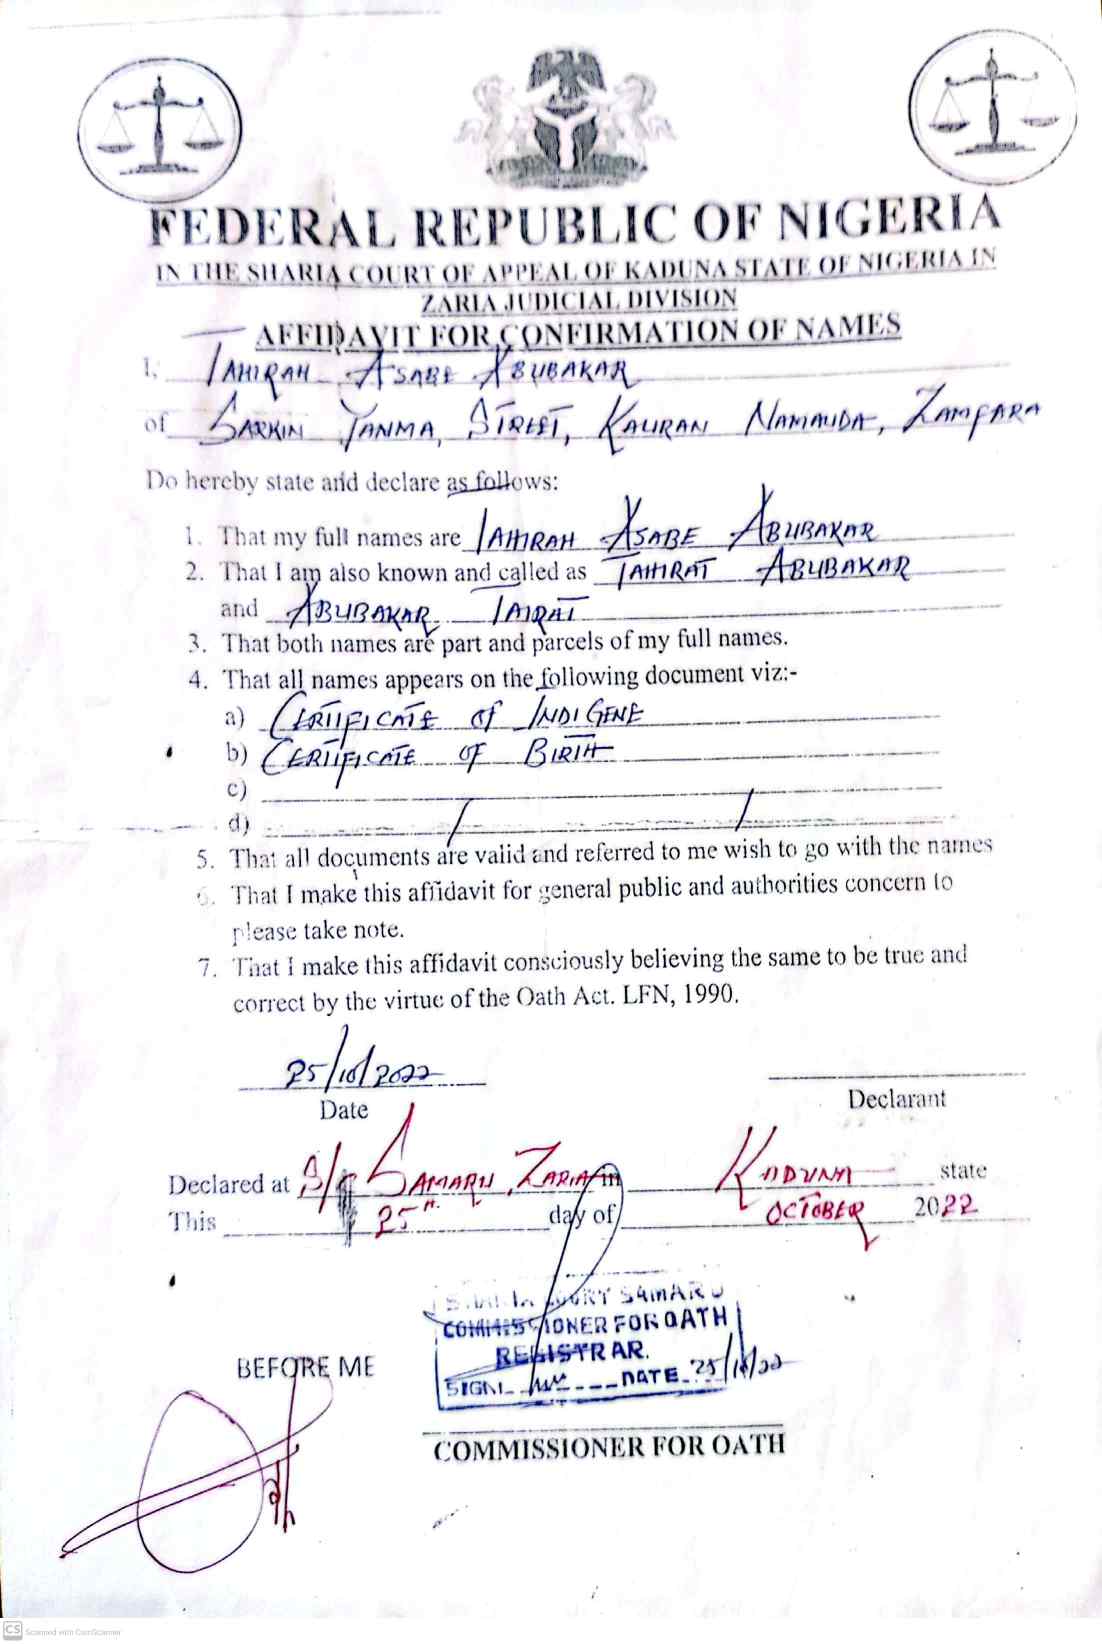 FEDERAL REPUBLIC OF NIGERIA
IN THE SHARIA COURT OF APPEAL OF KADUNA STATE OF NIGERIA IN
ZARIA JUDICIAL DIVISION
AFFIDAVIT FOR CONFIRMATION OF NAMES
I, TAHIRAH ASABE ABUBAKAR
of SARKIN YANMA, STREET, KAURAN NAMAUDA, ZAMFARA
Do hereby state and declare as follows:
1. That my full names are TAHIRAH ASABE ABUBAKAR
2. That I am also known and called as TAHIRAT ABUBAKAR
and ABUBAKAR TAIRAT
3. That both names are part and parcels of my full names.
4. That all names appears on the following document viz:-
a) CERTIFICATE OF INDIGENE
b) CERTIFICATE OF BIRTH
c)
d)
5. That all documents are valid and referred to me wish to go with the names
6. That I make this affidavit for general public and authorities concern to
please take note.
7. That I make this affidavit consciously believing the same to be true and
correct by the virtue of the Oath Act. LFN, 1990.
25/10/2022
Date
Declarant
Declared at S/C SAMARU, ZARIA in KADUNA state
This 25th day of OCTOBER 2022
SHARIA COURT SAMARU
COMMISSIONER FOR OATH
REGISTRAR.
SIGN DATE 25/10/22
BEFORE ME
COMMISSIONER FOR OATH
CS Scanned with CamScanner